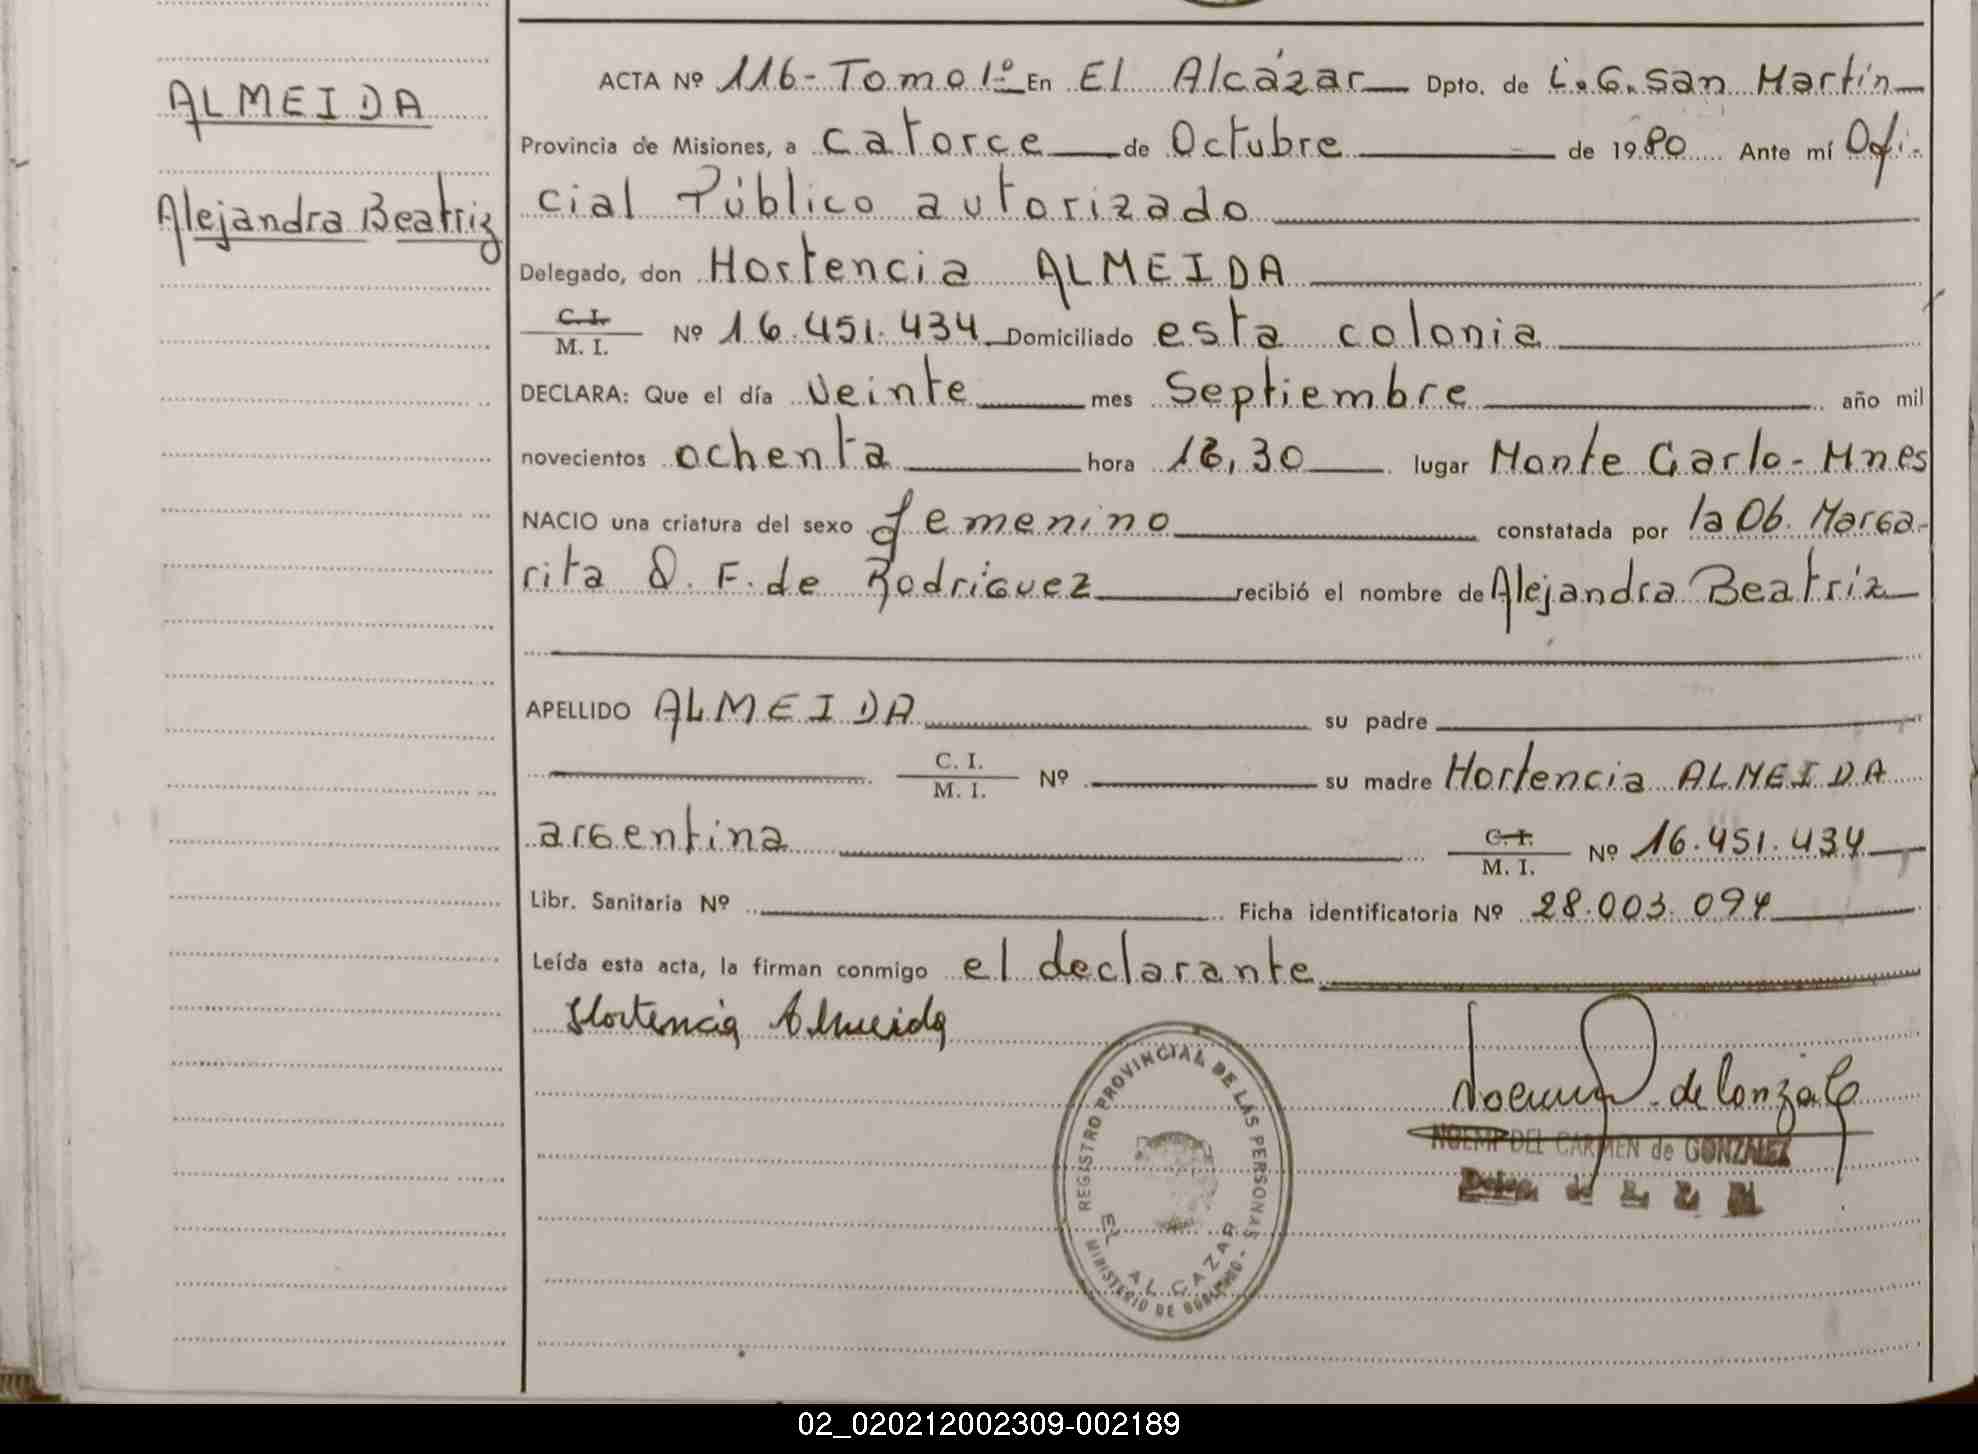 ALMEIDA
Alejandra Beatriz
ACTA Nº 116-Tomo 1º En El Alcázar Dpto. de L.G.San Martín
Provincia de Misiones, a catorce de Octubre de 1980 Ante mí Ofi-
cial Público autorizado
Delegado, don Hortencia ALMEIDA
C. I.
M. I. Nº 16.451.434 Domiciliado esta colonia
DECLARA: Que el día veinte mes Septiembre año mil
novecientos ochenta hora ,30 lugar Monte Carlo-Mnes
NACIO una criatura del sexo femenino constatada por la Ob. Marga-
rita F. de Rodríguez recibió el nombre de Alejandra Beatríz
APELLIDO ALMEIDA su padre
C. I.
M. I. Nº su madre Hortencia ALMEIDA
argentina C. I.
M. I. Nº 16.451.434
Libr. Sanitaria Nº Ficha identificatoria Nº 28.003.094
Leída esta acta, la firman conmigo el declarante
Hortencia Almeida
REGISTRO PROVINCIAL DE LAS PERSONAS
EL ALCAZAR
MINISTERIO DE GOBIERNO
de Gonzalez
NOEMI DEL CARMEN de GONZALEZ
02_020212002309-002189